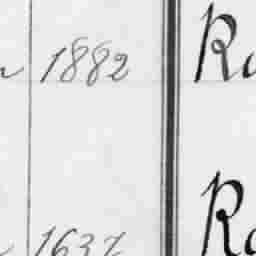 1882 Ra
1637 Ra